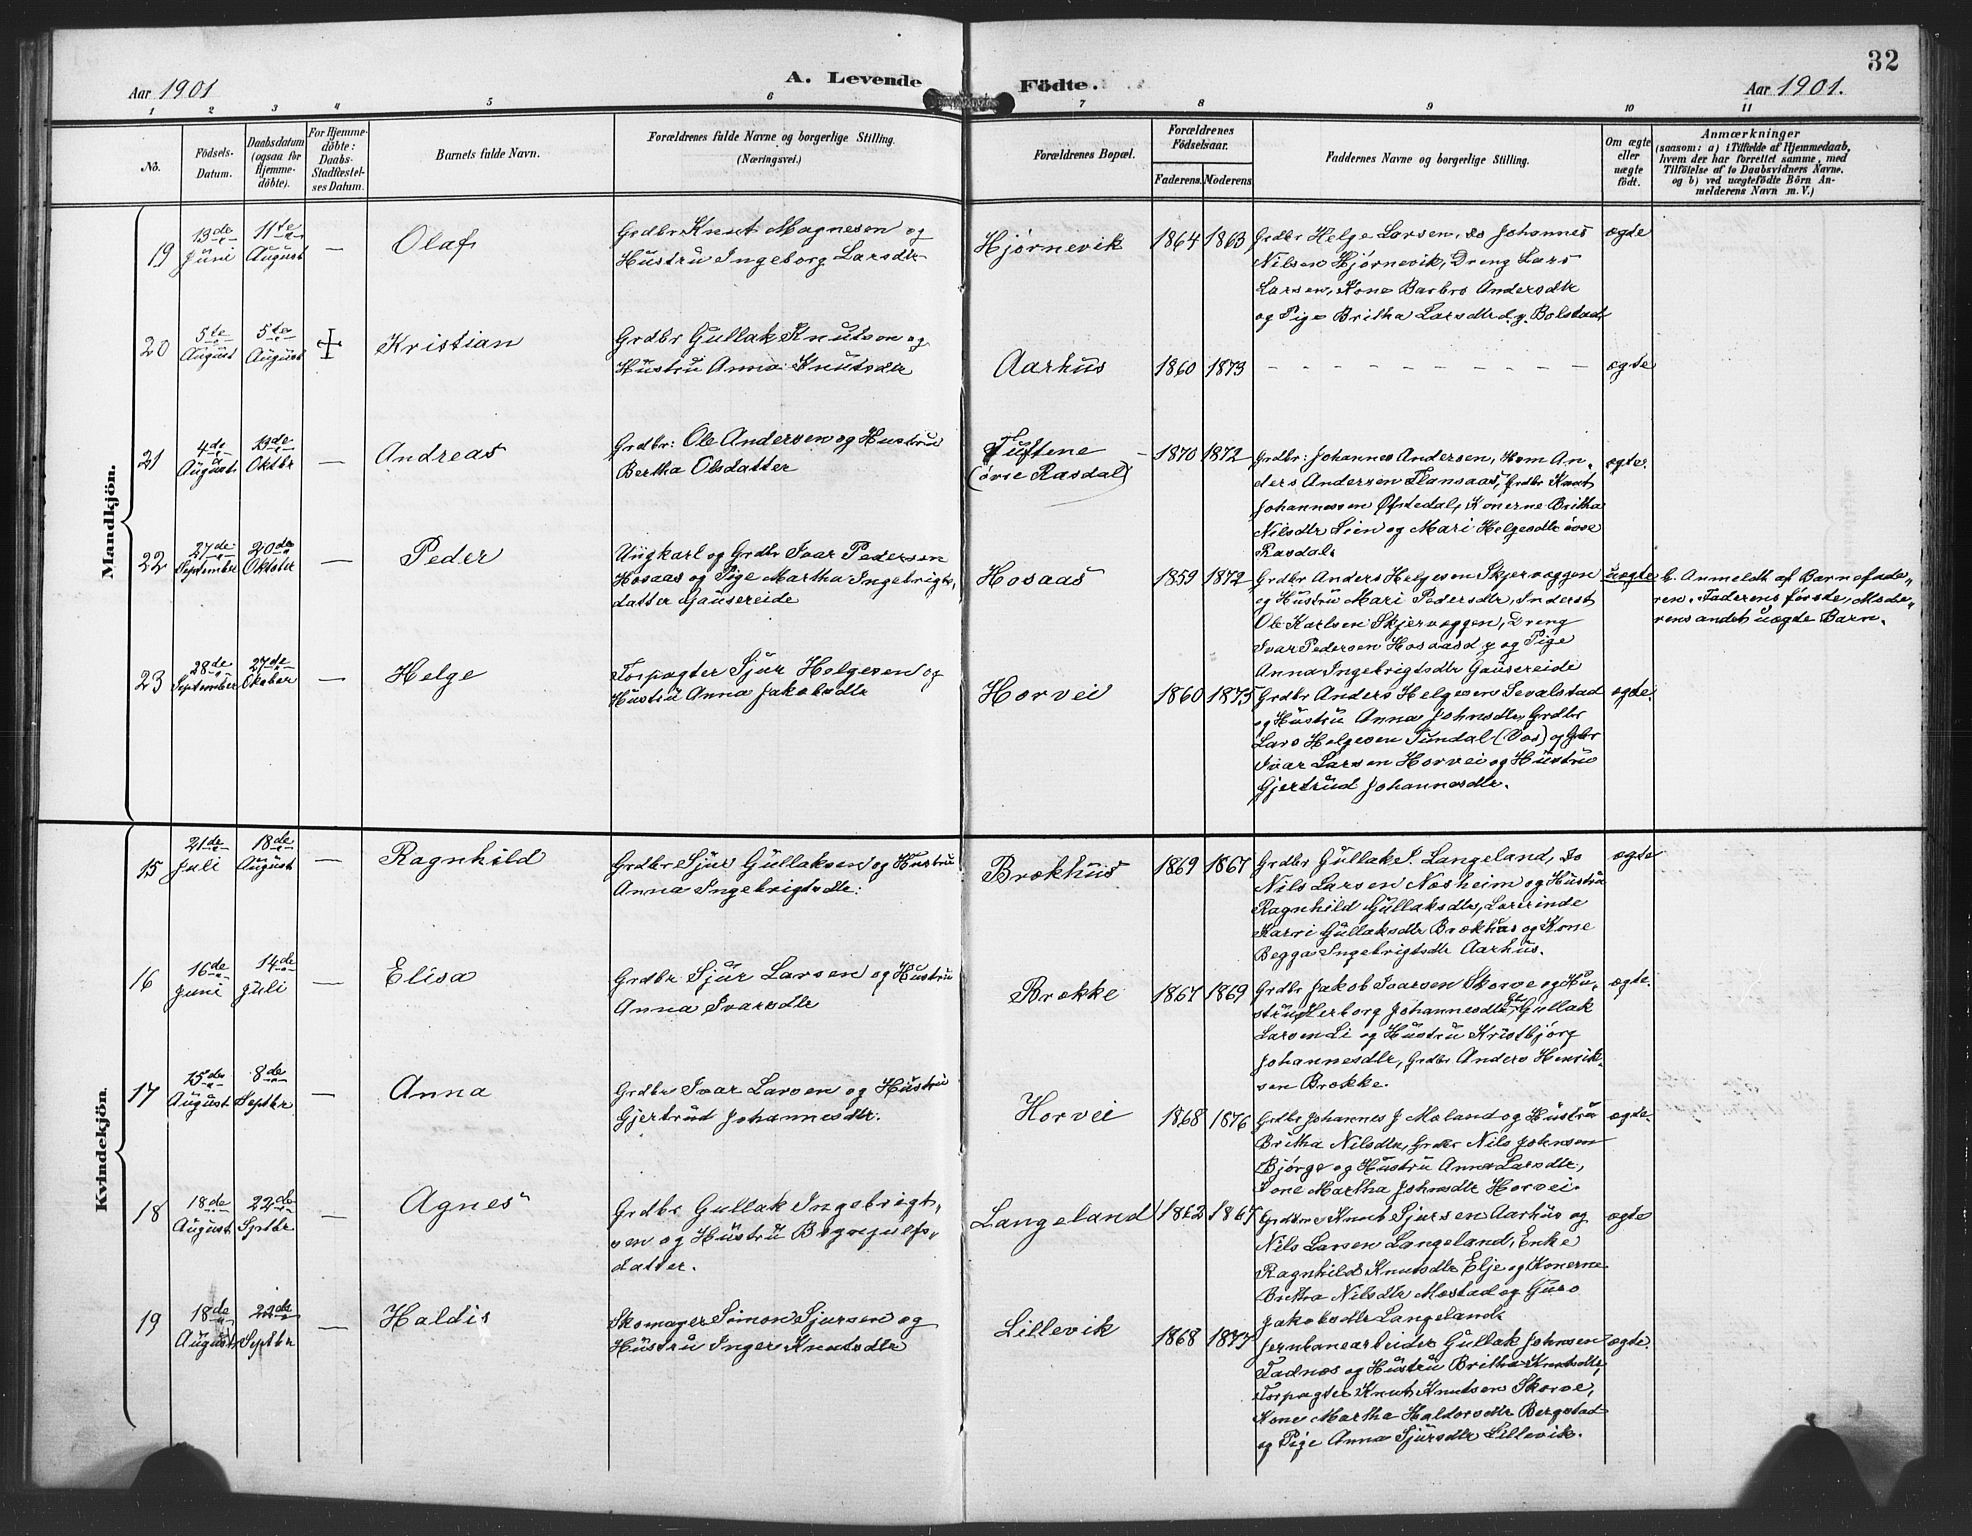 32
A. Levende Födte.
Aar 1901
Aar 1901.
1 2 3 4 5 6 7 8 9 10 11
No.
Födsels-
Datum.
Daabsdatum
(ogsaa for
Hjemme-
döbte).
For Hjemme-
döbte:
Daabs-
Stadfæstel-
ses Datum.
Barnets fulde Navn.
Forældrenes fulde Navne og borgerlige Stilling.
(Næringsvei.)
Forældrenes Bopæl.
Forældrenes
Födselsaar.
Faderens. Moderens
Faddernes Navne og borgerlige Stilling.
Om ægte
eller
uægte
födt.
Anmærkninger
(saasom: a) i Tilfælde af Hjemmedaab,
hvem der har forrettet samme, med
Tilföielse af to Daabsvidners Navne.
og b) ved uægtefödte Börn An-
melderens Navn m. V.)
Mandkjön.
19
13de
Juni
11te
August
—
Olaf
Grdbr Knut Magnesen og
Hustru Ingeborg Larsdtr
Hjørnevik
1864 1863
Grdbr Helge Larsen, do Johannes
Nilsen Hjørnevik, Dreng Lars
Larsen, Kone Barbro Andersdtr
og Pige Britha Larsdtr d.y. Bolstad.
ægte
20
5te
August
5te
August
Kristian
Grdbr Gullak Knutsen og
Hustru Anna Knutsdtr
Aarhus
1860 1873
- - - - - - - - - -
ægte
21
4de
August
13de
Oktbr
—
Andreas
Grdbr: Ole Andersen og Hustru
Bertha Olsdatter
Tuftene
(øvre Rasdal)
1870 1872
Grdbr: Johannes Andersen, Hsm An-
ders Andersen Flansaas, Grdbr Knut
Johannessen Øfstedal, Konerne Britha
Nilsdtr Sien og Mari Helgesdtr øvre
Rasdal.
ægte.
22
27de
September
20de
Oktober
—
Peder
Ungkarl og Grdbr Ivar Pedersen
Hosaas og Pige Martha Ingebrigts-
datter Gausereide
Hosaas
1859 1872
Grdbr Anders Helgesen Skjervæggen
og Hustru Mari Pedersdtr, Inderst
Ole Karlsen Skjervæggen, Dreng
Ivar Pedersen Hosaas d y og Pige
Anna Ingebrigtsdtr Gausereide
uægte
b. Anmeldt af Barnefade-
ren. Faderens første, Mode-
rens andet uægte Barn.
23
28de
September
27de
Okober
—
Helge
Forpagter Sjur Helgesen og
Hustru Anna Jakobsdtr
Horvei
1860 1875
Grdbr Anders Helgesen Sevalstad
og Hustru Anna Johnsdtr, Grdbr
Lars Helgesen Sundal (Vos) og Grbr
Ivar Larsen Horvei og Hustru
Gjertrud Johannesdtr.
ægte.
Kvindekjön.
15
21de
Juli
18de
August
—
Ragnhild
Grdbr Sjur Gullaksen og Hustru
Anna Ingebrigtsdtr.
Brækhus
1869 1867
Grdbr Gullak I. Langeland, do
Nils Larsen Næsheim og Hustru
Ragnhild Gullaksdtr, Lærerinde
Karri Gullaksdtr Brækhus og Kone
Begga Ingebrigtsdtr Aarhus.
ægte
16
16de
Juni
14de
Juli
—
Elisa
Grdbr Sjur Larsen og Hustru
Anna Ivarsdtr
Brække
1867 1869
Grdbr Jakob Ivarsen Skorve og Hu-
stru Herborg Johannesdtr, Gullak
Larsen Li og Hustru Kristbjørg
Johannesdtr, Grdbr Anders Henrik-
sen Brække.
ægte.
17
15de
August
8de
Septbr
—
Anna
Grdbr Ivar Larsen og Hustru
Gjertrud Johannesdtr.
Horvei
1868 1876
Grdbr Johannes J Mæland og Hustru
Britha Nilsdtr, Grdbr Nils Johnsen
Bjørge og Hustru Anna Larsdtr,
Kone Martha Johnsdtr Horvei.
ægte.
18
18de
August
22de
Sptbr
—
Agnes
Grdbr Gullak Ingebrigt-
sen og Hustru
datter.
Langeland
1862 1867
Grdbrne Knut Sjursen Aarhus og
Nils Larsen Langeland, Enke
Ragnhild Knutsdtr Elje og Konerne
Britha Nilsdtr Mostad og Guro
Jakobsdtr Langeland.
ægte
19
18de
August
22de
Septbr
—
Haldis
Skomager Simon Sjursen og
Hustru Inger Knutsdtr
Lillevik
1868 1877
Jernbanearbeider Gullak Johnsen
Tadnæs og Hustru Britha Knutsdtr,
Forpagter Knut Knutsen Skorve,
Kone Martha Haldorsdtr Bergstad
og Pige Anna Sjursdtr Lillevik.
ægte.